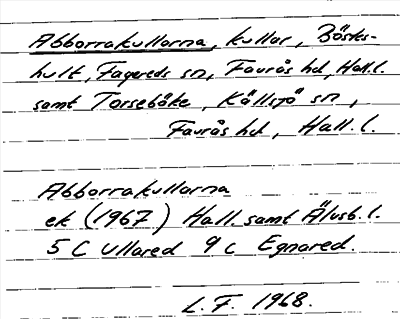 Abborrakullarna, kullar, Böske-
hult, Fagereds sn, Faurås hd, Hall.l.
samt Torsebäke, Källsjö sn,
Faurås hd, Hall.l.
Abborrakullarna
ek (1967) Hall. samt Älvsb.l.
5 C Ullared 9 c Egnared.
L.F. 1968.